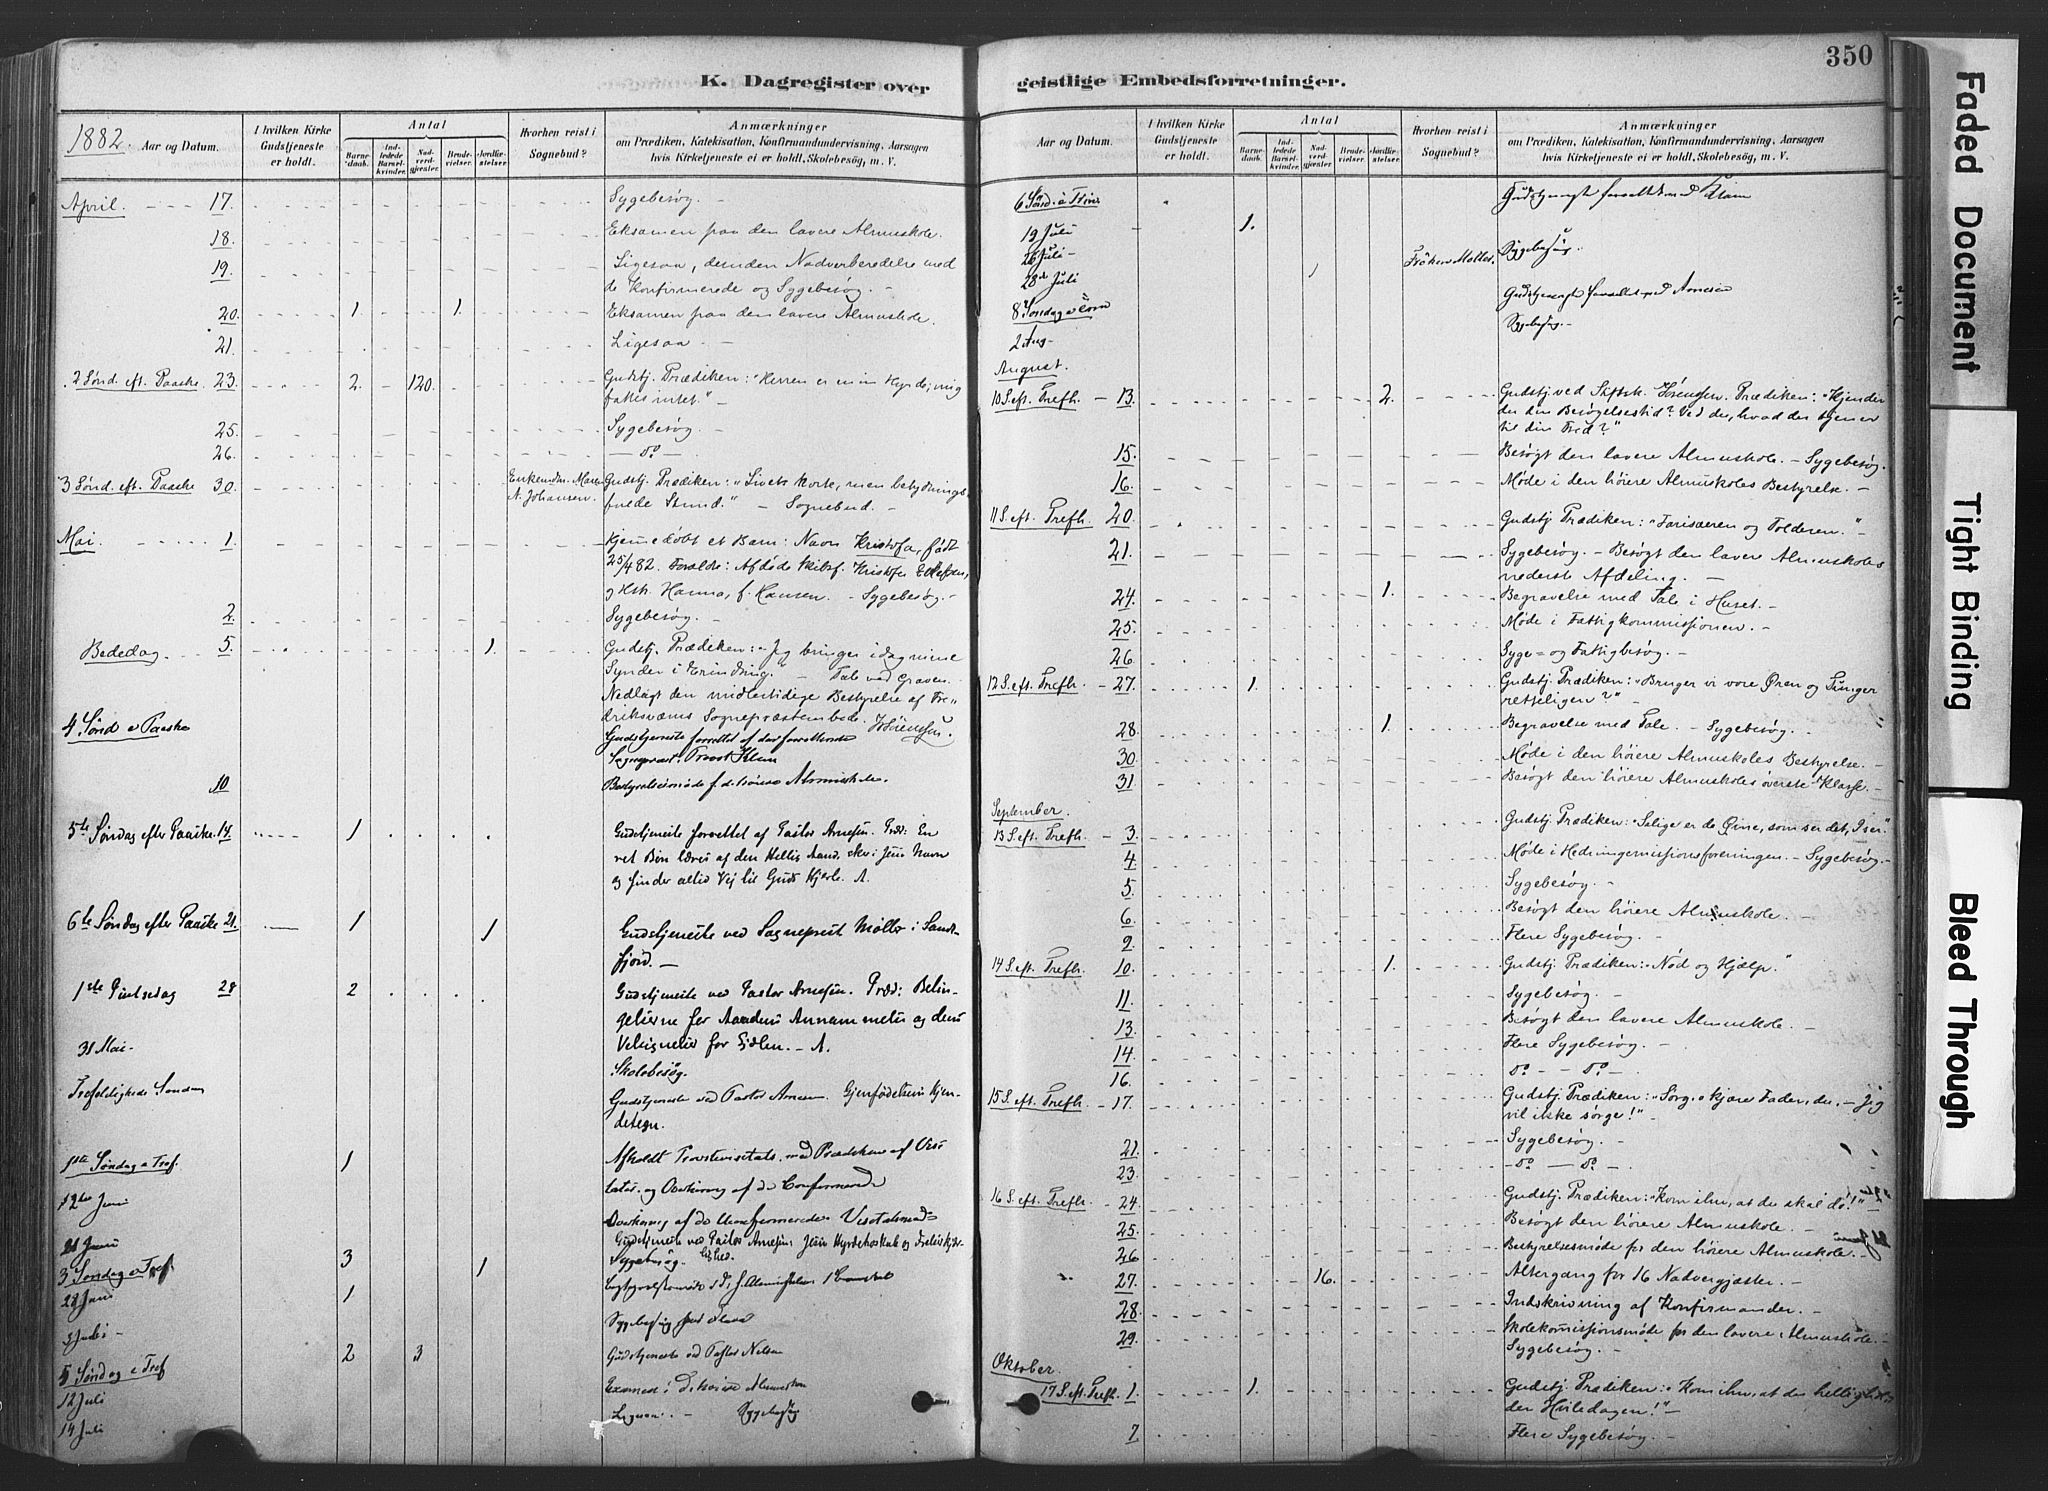 350
K. Dagregister over
geistlige Embedsforretninger.
1882. Aar og Datum.
I hvilken Kirke Gudstjeneste er holdt.
Antal
Barne-daab.
Ind-ledede Barsel-kvinder.
Nad-verd-gjester.
Brude-vielser.
Jordfæ-stelser.
Hvorhen reist i Sognebud?
Anmærkninger
om Prædiken, Katekisation, Konfirmandundervisning, Aarsagen
hvis Kirketjeneste ei er holdt, Skolebesøg, m. V.
April. 17. Sygebesøg. –
18. Eksamen paa den lavere Almuskole.
19. Ligesaa, desuden Nadverberedelse med
de Konfirmerede og Sygebesøg. –
20. 1 1. Eksamen paa den lavere Almuskole.
21. Ligesaa –
2 Sønd. eft. Paaske. 23. 2. 120. Gudstj. Prædiken: "Herren er min Hyrde; mig
fattes intet." –
25. Sygebesøg.
26. – do –
3 Sønd. eft. Paaske 30. Gudstj. Prædiken: "Livets korte, men betydnings-
N. Johansen. fulde Stund." – Sognebud. –
Mai. 1. Hjemmedøbt et Barn: Navn Kristofa, født
25/4 82. Forældre: Afdøde Skibsf. Kristofer
og Hstr. Hanna, f. Hansen. – Sygebesøg. –
2. Sygebesøg. –
Bededag. 5. 1. Gudstj. Prædiken: "Jeg bringer idag mine
Synder i Erindring." – Tale ved Graven.
Nedlagt den midlertidige Bestyrelse af Fre-
driksværns Sognepræstembede. Sørensen.
4 Sønd e Paaske Gudstjeneste forrettet af
Sognepræst, Provst Klem
10 Bestyrelsesmøde f. d. høiere Almueskole.
5te Søndag efter Paaske. 14. 1 Gudstjeneste forrettet af Pastor Arnesen. Præd: En
ret Bøn læres af den Hellig Aand, sker i Jesu Navn
og finder altid Vej til Guds Hjerte. A.
6te Søndag efter Paaske 21. 1 1 Gudstjeneste ved Sogneprest Møller i Sande-
fjord. –
1ste Pintsedag 28 2 Gudstjeneste ved Pastor Arnesen. Præd: Betin-
gelserne for Aandens Annammelse og dens
Velsignelse for Sjælen. – A.
31 Mai – Skolebesøg.
Trefoldigheds Søndag Gudstjeneste ved Pastor Arnesen. Gjenfødelsens Kjen-
detegn.
1ste Søndag e Tref. 1 Afholdt Provstevisitats med Prædiken af Visi-
tator og Overhøring af de Confirmerede
12te Juni
21 Juni Gudstjeneste ved Pastor Arnesen
3 Søndag e Tref 3 1 Sygebesøg.
28 Juni 1
Juli –
5 Søndag e Tref 2 3 Gudstjeneste ved Pastor Nelsen
12 Juli Examen i d høiere Almueskole
14 Juli Ligesaa. – Sygebesøg
Aar og Datum.
I hvilken Kirke Gudstjeneste er holdt.
Antal
Barne-daab.
Ind-ledede Barsel-kvinder.
Nad-verd-gjester.
Brude-vielser.
Jordfæ-stelser.
Hvorhen reist i Sognebud?
Anmærkninger
om Prædiken, Katekisation, Konfirmandundervisning, Aarsagen
hvis Kirketjeneste ei er holdt, Skolebesøg, m. V.
6 Sønd. e Trin. Gudstjeneste forrettet ved Klem
19 Juli 1.
26 Juli – Sygebesøg.
28de Juli 1 Frøken Møller.
8 Søndag e Gudstjeneste forrettet ved Arnesen
2 Aug – Sygebesøg. –
August.
10 S. eft. Trefh. – 13. 2. Gudstj. ved Stiftsk. Sørensen. Prædiken: "Kjender
du din Besøgelsestid? Ved du, hvad der tjener
til din Fred?"
15. Besøgt den lavere Almuskole. – Sygebesøg.
16. Møde i den høiere Almuskoles Bestyrelse. –
11 S. eft. Trefh. 20. Gudstj. Prædiken: "Farisæeren og Tolderen."
21. Sygebesøg. – Besøgt den lavere Almuskoles
nederste Afdeling. –
24. 1. Begravelse med Tale i Huset. –
25. Møde i Fattigkommissionen. –
26. Syge= og Fattigbesøg. –
12 S. eft. Trefh. – 27. 1. Gudstj. Prædiken: "Bruger vi vore Øren og Tunger
retteligen?" –
28. 1. Begravelse med Tale. – Sygebesøg. –
30. Møde i den høiere Almuskoles Bestyrelse. –
31. Besøgt den høiere Almuskoles øverste Klasse. –
September.
13 S. eft. Trefh. – 3. Gudstj. Prædiken: "Salige er de Øine, som ser det, I ser."
4. Møde i Hedningemissionsforeningen. – Sygebesøg. –
5. Sygebesøg. –
6. Besøgt den høiere Almuskole. –
9. Flere Sygebesøg. –
14 S. eft. Trefh. – 10. 1. Gudstj. Prædiken: "Nød og Hjælp."
11. Sygebesøg. –
13. Besøgt den lavere Almuskole. –
14. Flere Sygebesøg. –
16. do – – do –
15 S. eft. Trefh. – 17. Gudstj. Prædiken: "Sørg, o kjære Fader, du, – Jeg
vil ikke sørge!" –
21. Sygebesøg. –
23. – do – do –
16 S. eft. Trefh. – 24. Gudstj. Prædiken: "Kom ihu, at du skal dø!" –
25. Besøgt den høiere Almuskole. –
26. Bestyrelsesmøde for den høiere Almuskole. –
27. 16. Altergang for 16 Nadvergjæster. –
28. Indskrivning af Konfirmander. –
29. Skolekommissionsmøde for den lavere Almuskole. –
Sygebesøg. –
Oktober.
17 S. eft. Trefh. 1. 1. Gudstj. Prædiken: "Kom ihu, at du helligholder
den Hviledagen!" –
7 Flere Sygebesøg. –
Faded Document
Tight Binding
Bleed Through